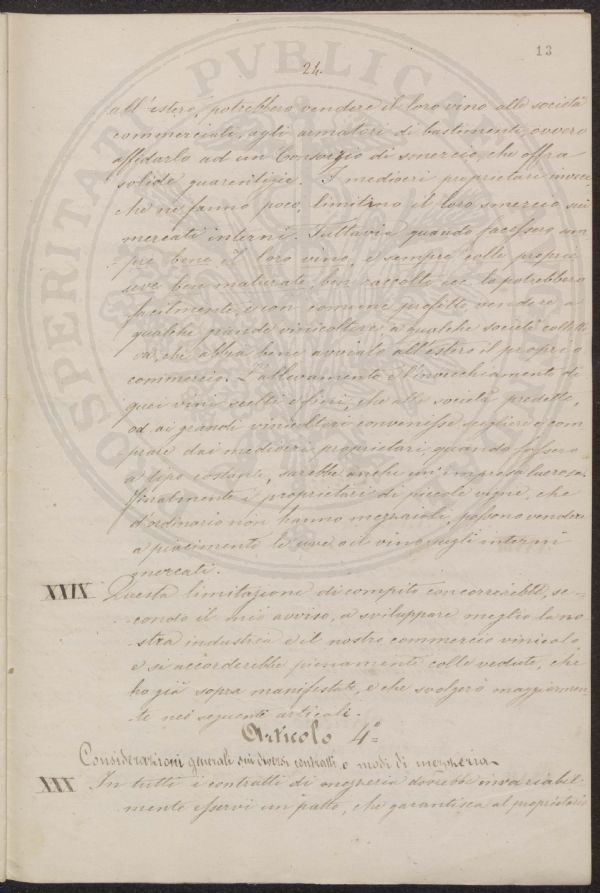 13
24.
all'estero, potrebbero vendere il loro vino alle società
commerciali, agli armatori di bastimenti, ovvero
affidarlo ad un Consorzio di smercio, che offra
solide guarentigie. I mediocri proprietari invece
che ne fanno poco, limitino il loro smercio sui
mercati interni. Tuttavia quando facessero sem
pre bene il loro vino, e sempre colle proprie
uve ben maturate, ben raccolte ecc. lo potrebbero
facilmente, e con comune profitto vendere a
qualche grande vinicoltore, a qualche società collett
iva, che abbia bene avviato all'estero il proprio
commercio. L'allevamento e l'invecchiamento di
quei vini scelti e fini, che alle società predette,
od ai grandi vinicoltori convenisse scegliere e com
prare dai mediocri proprietari quando fossero
a tipo costante, sarebbe anche un'impresa lucrosa.
Finalmente i proprietari di piccole vigne, che
d'ordinario non hanno mezzaioli, possono vendere
a piacimento le uve o il vino sugli interni
mercati.
XXIX Questa limitazione di compito concorrerebbe, se-
condo il mio avviso, a sviluppare meglio la no
stra industria e il nostro commercio vinicolo
e si accorderebbe pienamente colle vedute, che
ho già sopra manifestate, e che svolgerò maggiormen
te nei seguenti articoli.
Articolo 4º
Considerazioni generali sui diversi contratti o modi di mezzeria.
XXX In tutti i contratti di mezzeria dovrebbe invariabil-
mente esservi un patto, che garantisca al proprietario
PVBLICAE
PROSPERITATI